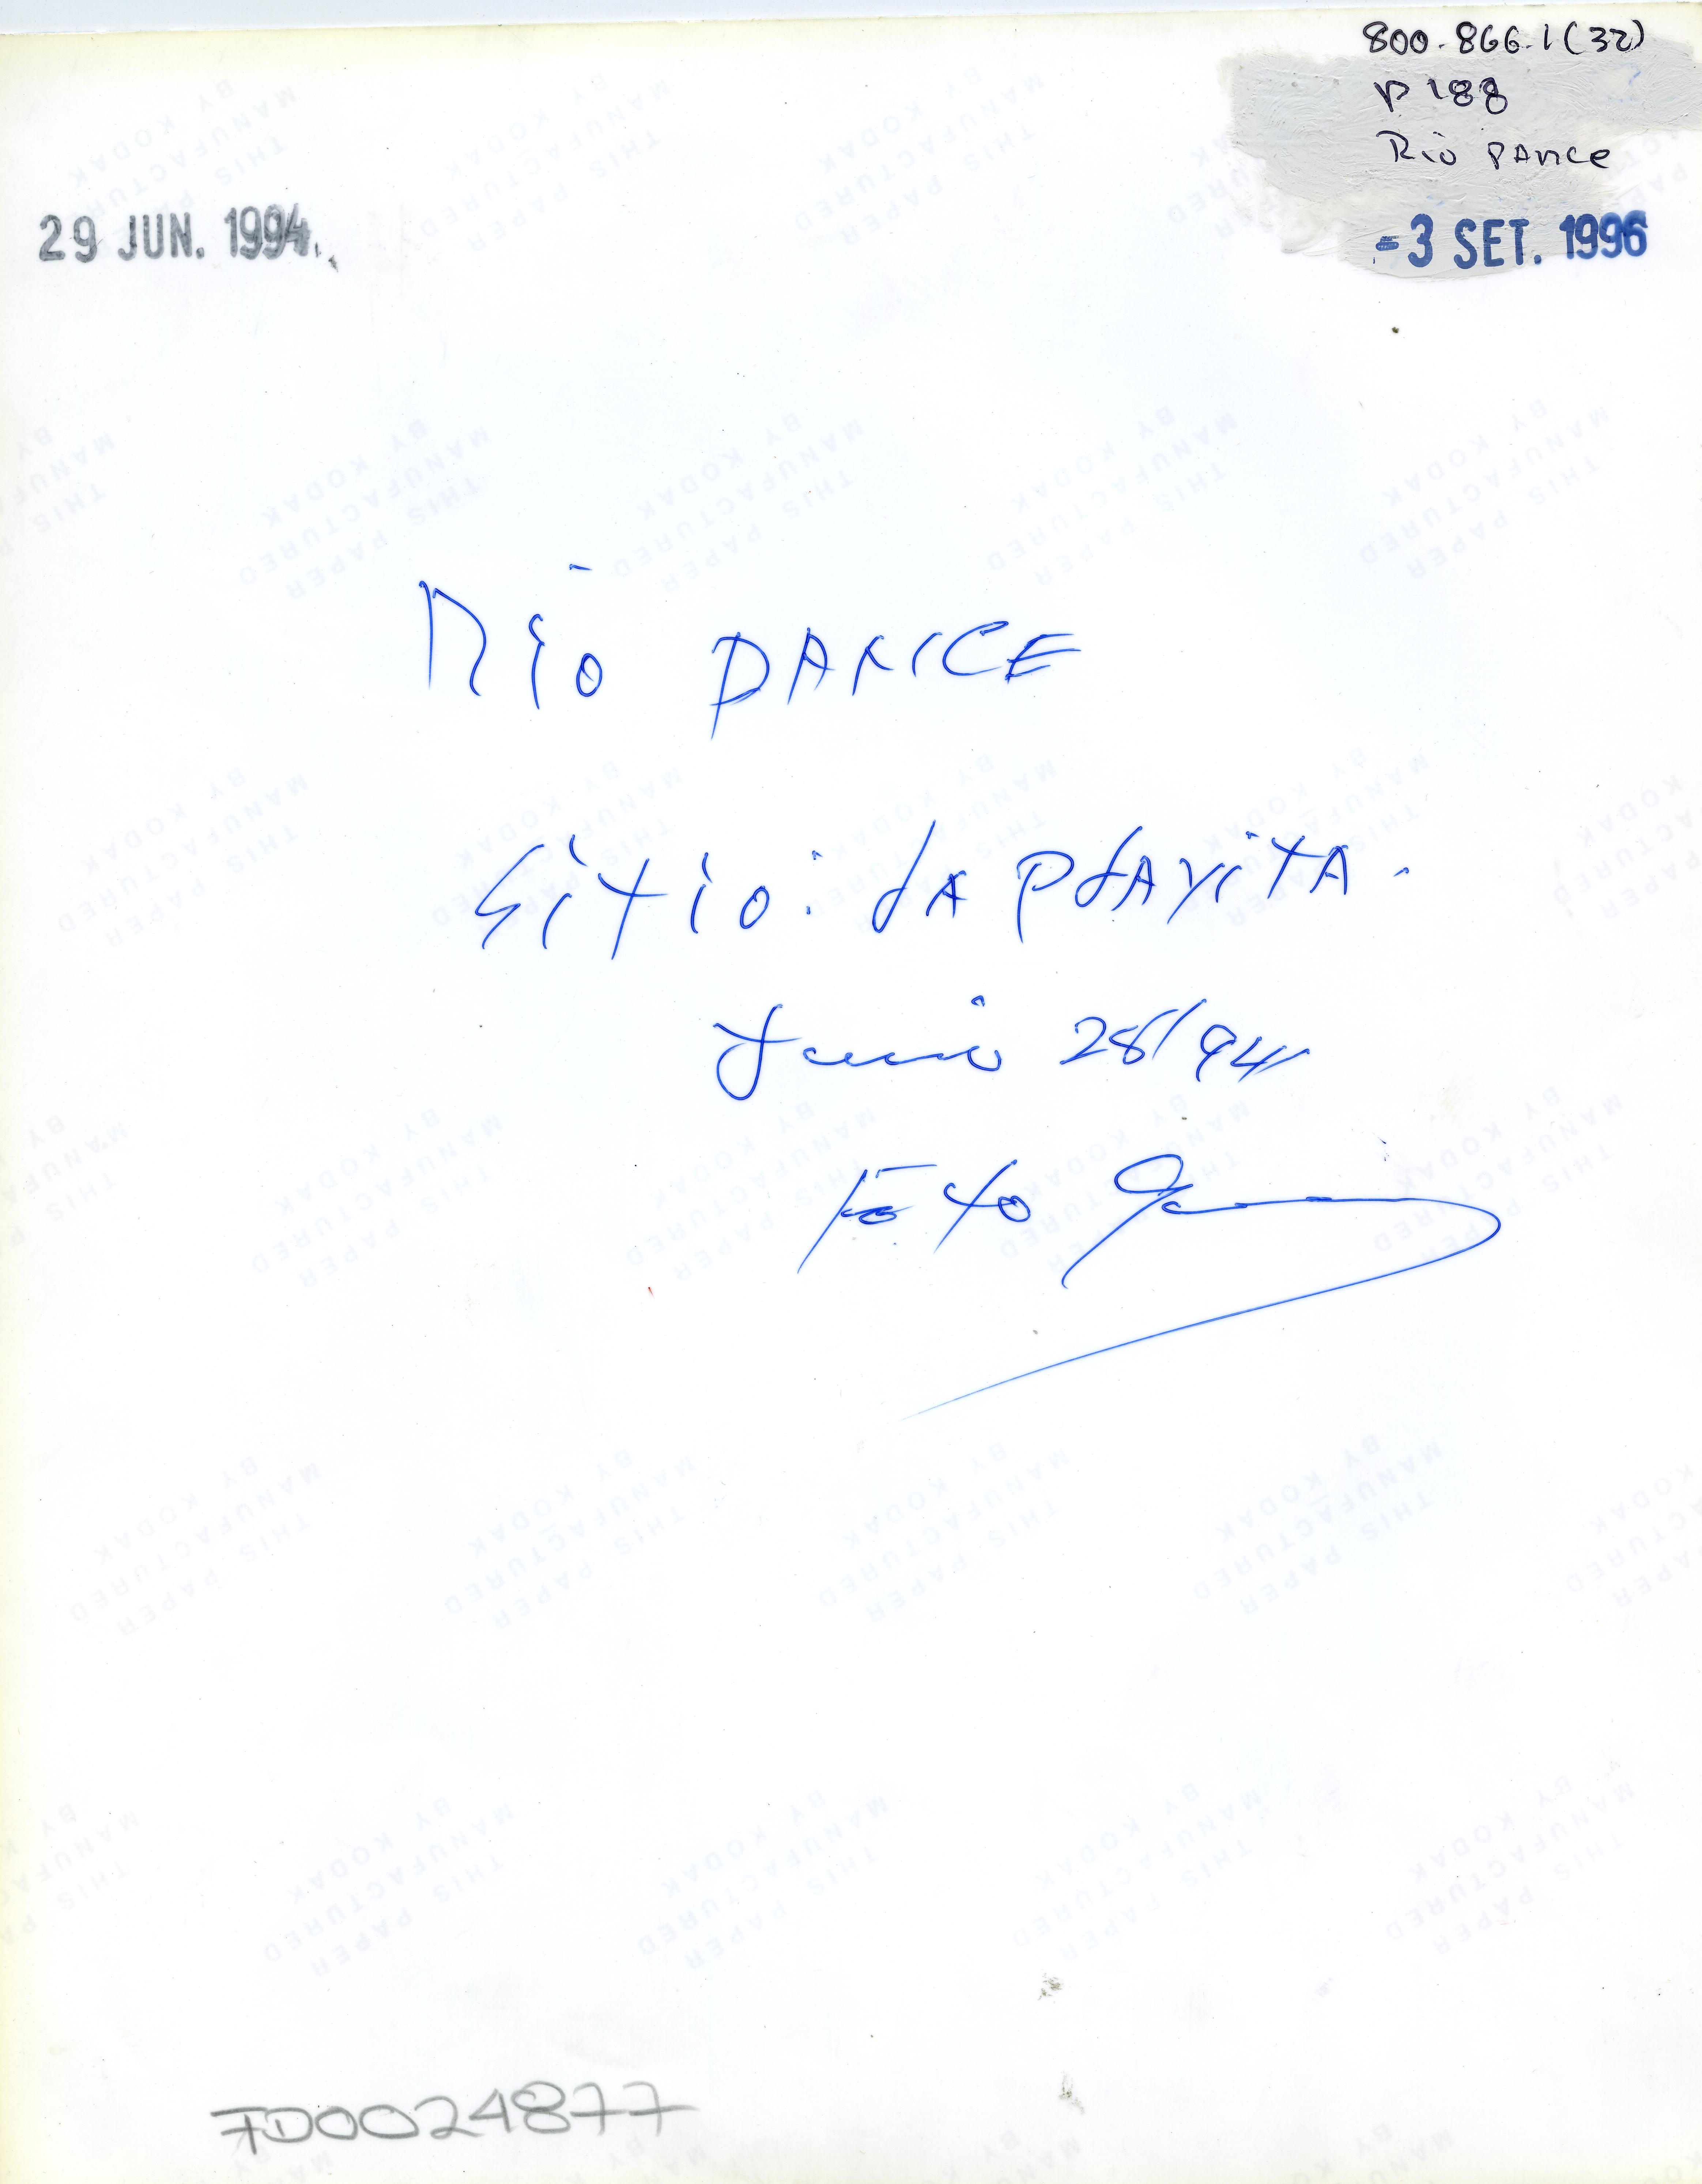 800.866.1(32)
P 188
Rio Pance
29 JUN. 1994.
-3 SET. 1996
Rio PANCE
Sitio: LA PLAYITA.
Junio 28/94
Foto
FD0024877
THIS PAPER
MANUFACTURED
BY KODAK